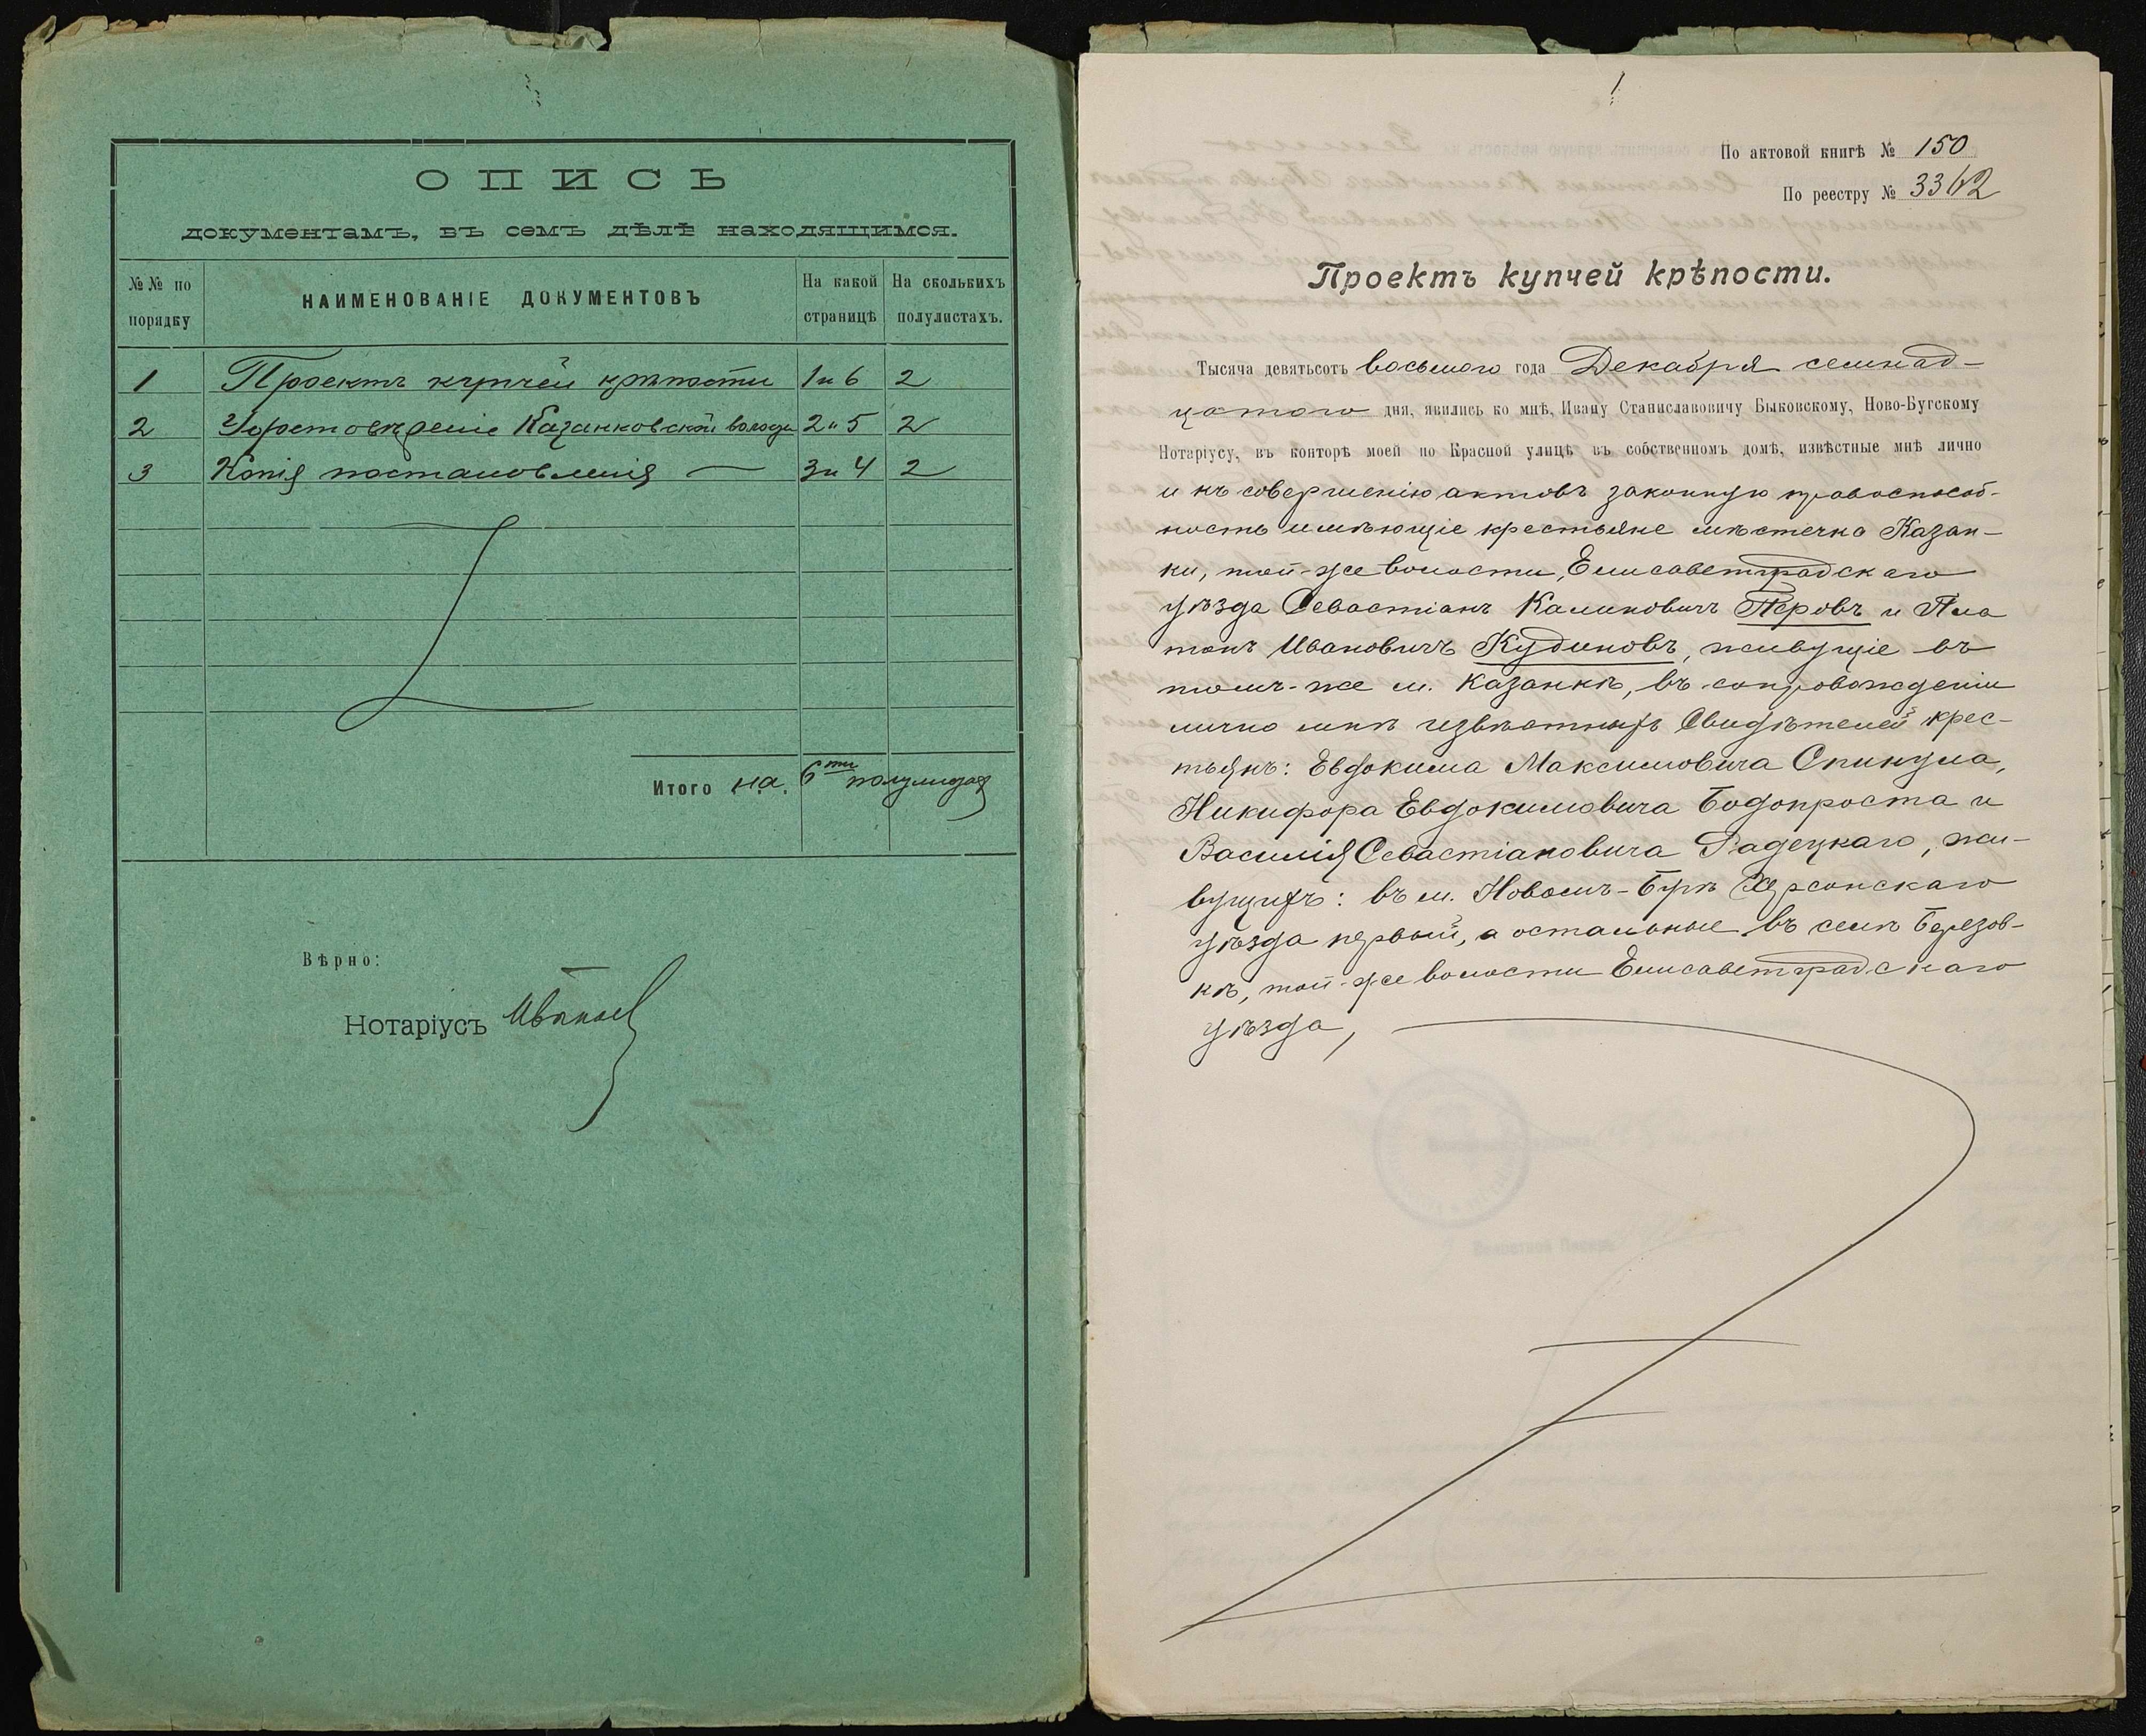 ОПИСЬ
документамъ, въ семъ дѣлѣ находящимся.
№№ по порядку
НАИМЕНОВАНІЕ ДОКУМЕНТОВЪ
На какой страницѣ
На сколькихъ полулистахъ.
1 Проектъ купчей крѣпости 1 и 6 2
2 Удостовѣреніе Казанковской волости 2 и 5 2
3 Копія постановленія — 3 и 4 2
Итого на 6ти полулистахъ
Вѣрно:
Нотаріусъ
1
По актовой книгѣ № 150
По реестру № 3342
Проектъ купчей крѣпости.
Тысяча девятьсотъ восьмого года Декабря семнад-
цатого дня, явились ко мнѣ, Ивану Станиславовичу Быковскому, Ново-Бугскому
Нотаріусу, въ конторѣ моей по Красной улицѣ въ собственномъ домѣ, извѣстные мнѣ лично
и къ совершенію актовъ законную правоспособ-
ность имѣющіе крестьяне мѣстечка Казан-
ки, той-же волости, Елисаветградскаго
уѣзда Севастіанъ Калиновичъ Перовъ и Пла
тонъ Ивановичъ Кудиновъ, живущіе въ
томъ-же м. Казанкѣ, въ сопровожденіи
лично мнѣ извѣстныхъ свидѣтелей крес-
тьянъ: Евдокима Максимовича Спинула,
Никифора Евдокимовича Бодопроста и
Василія Севастіановича Радецкаго, жи-
вущихъ: въ м. Новомъ-Бугѣ Херсонскаго
уѣзда первый, а остальные въ селѣ Березов-
кѣ, той-же волости Елисаветградскаго
уѣзда,